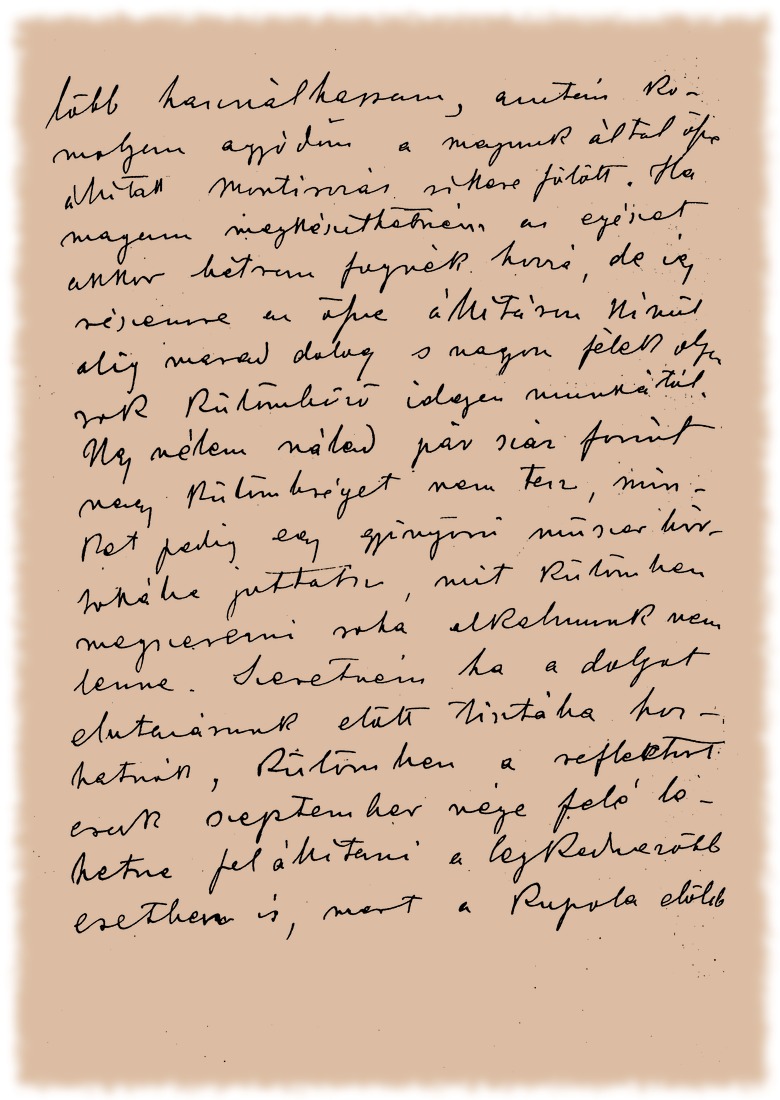 több használhassam, aztán ko-
molyan aggódom a magunk által össze
állított montirozás sikere fölött. Ha
magam megkészíthetném az egészet
akkor bátran fognék hozzá, de így
részemre az össze állításon kívül
alig marad dolog s nagyon félek olyan
sok különböző idegen munkától.
Úgy vélem nálad pár száz forint
nagy külömbséget nem tesz, min-
ket pedig egy gyönyörű műszer bir-
tokába juttatsz, mit külömben
megszerezni soha alkalmunk nem
lenne. Szeretném ha a dolgot
elutazásunk előtt tisztába hoz-
hatnók, külömben a reflektort
csak szeptember vége felé le-
hetne felállítani a legkedvezőbb
esetben is, mert a kupola előbb